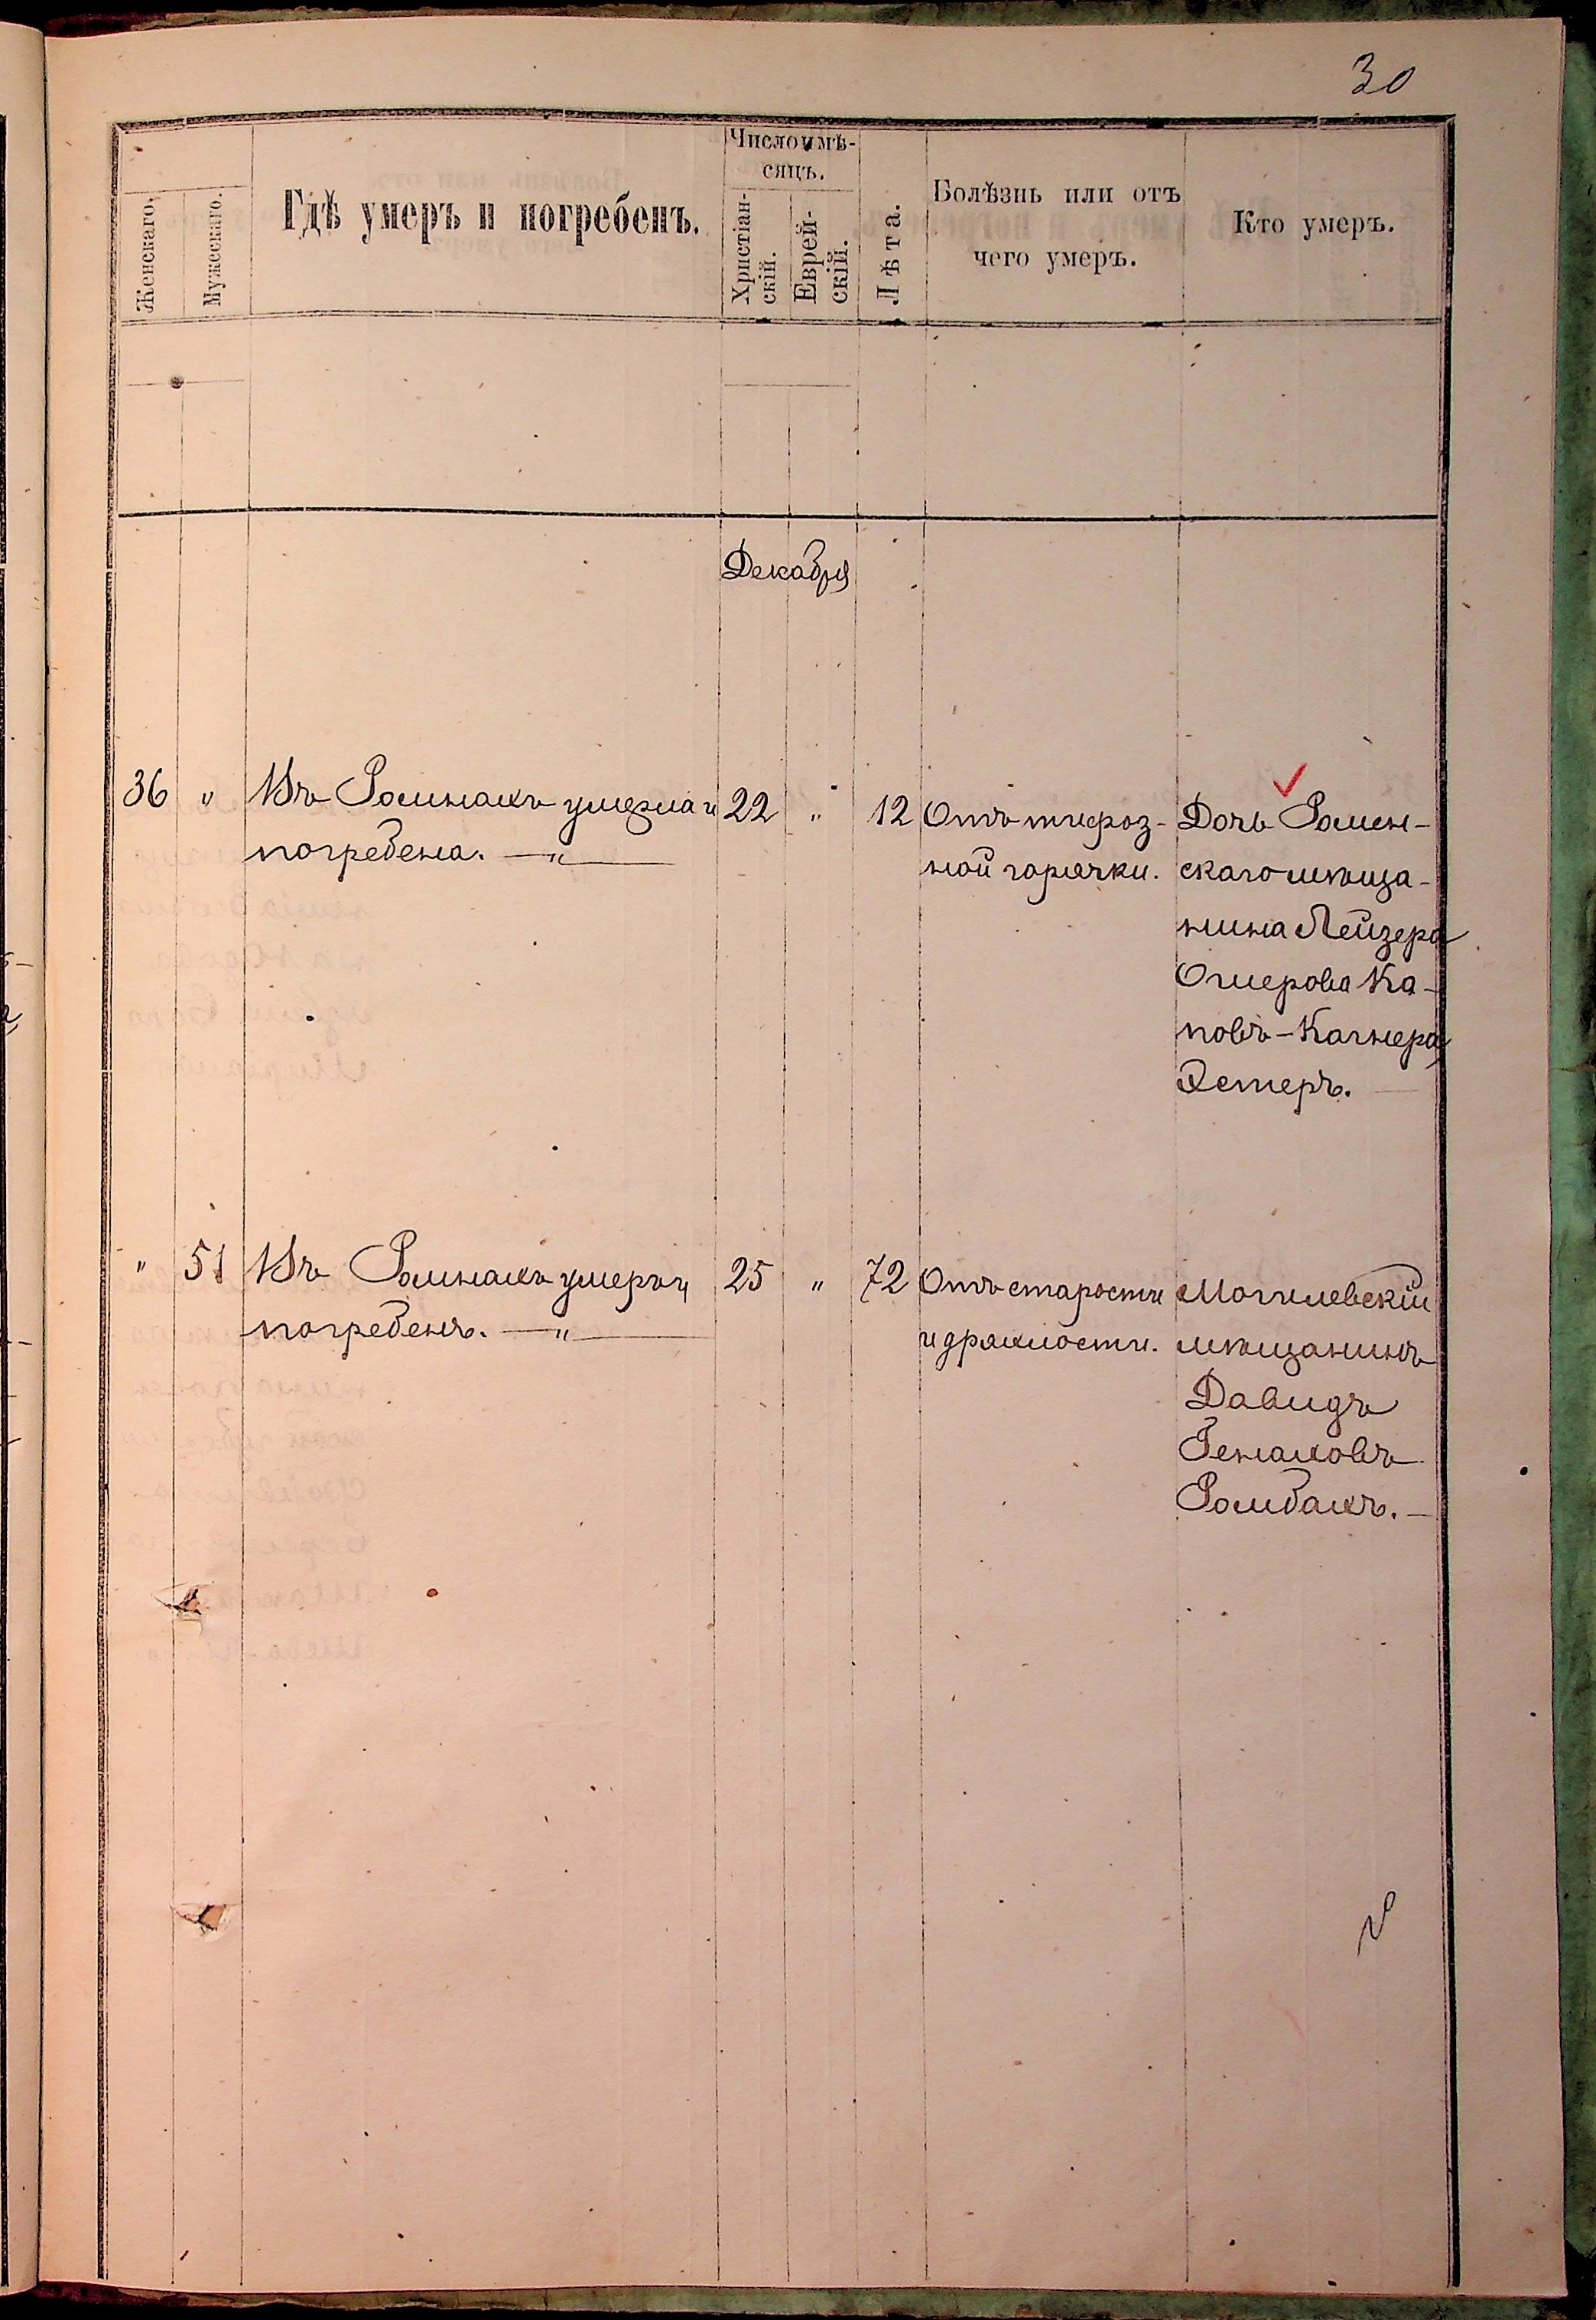 30
Женскаго.
Мужескаго.
Гдѣ умеръ и погребенъ.
Число и мѣ-
сяцъ.
Христіан-
скій.
Еврей-
скій.
Лѣта.
Болѣзнь или отъ
чего умеръ.
Кто умеръ.
Декабря
36 " Въ Ромнахъ умерла и
погребена. — " —
22 " 12
Отъ тифоз-
ной горячки.
Дочь Ромен-
скаго мѣща-
нина Лейзера
Ошерова Ка-
повъ-Кагнера
Эстеръ.
" 51 Въ Ромнахъ умеръ и
погребенъ. — " —
25 " 72
Отъ старости
и дряхлости.
Могилевскій
мѣщанинъ
Давидъ
Генаховъ
Ромбахъ. —